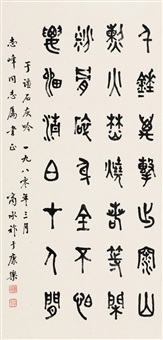 千錘萬擊出深山
烈火焚燒若等閒
粉骨碎身全不怕
要留清白在人間
于謙石灰吟 一九八零年三月
志峰同志屬書正 商承祚于康樂